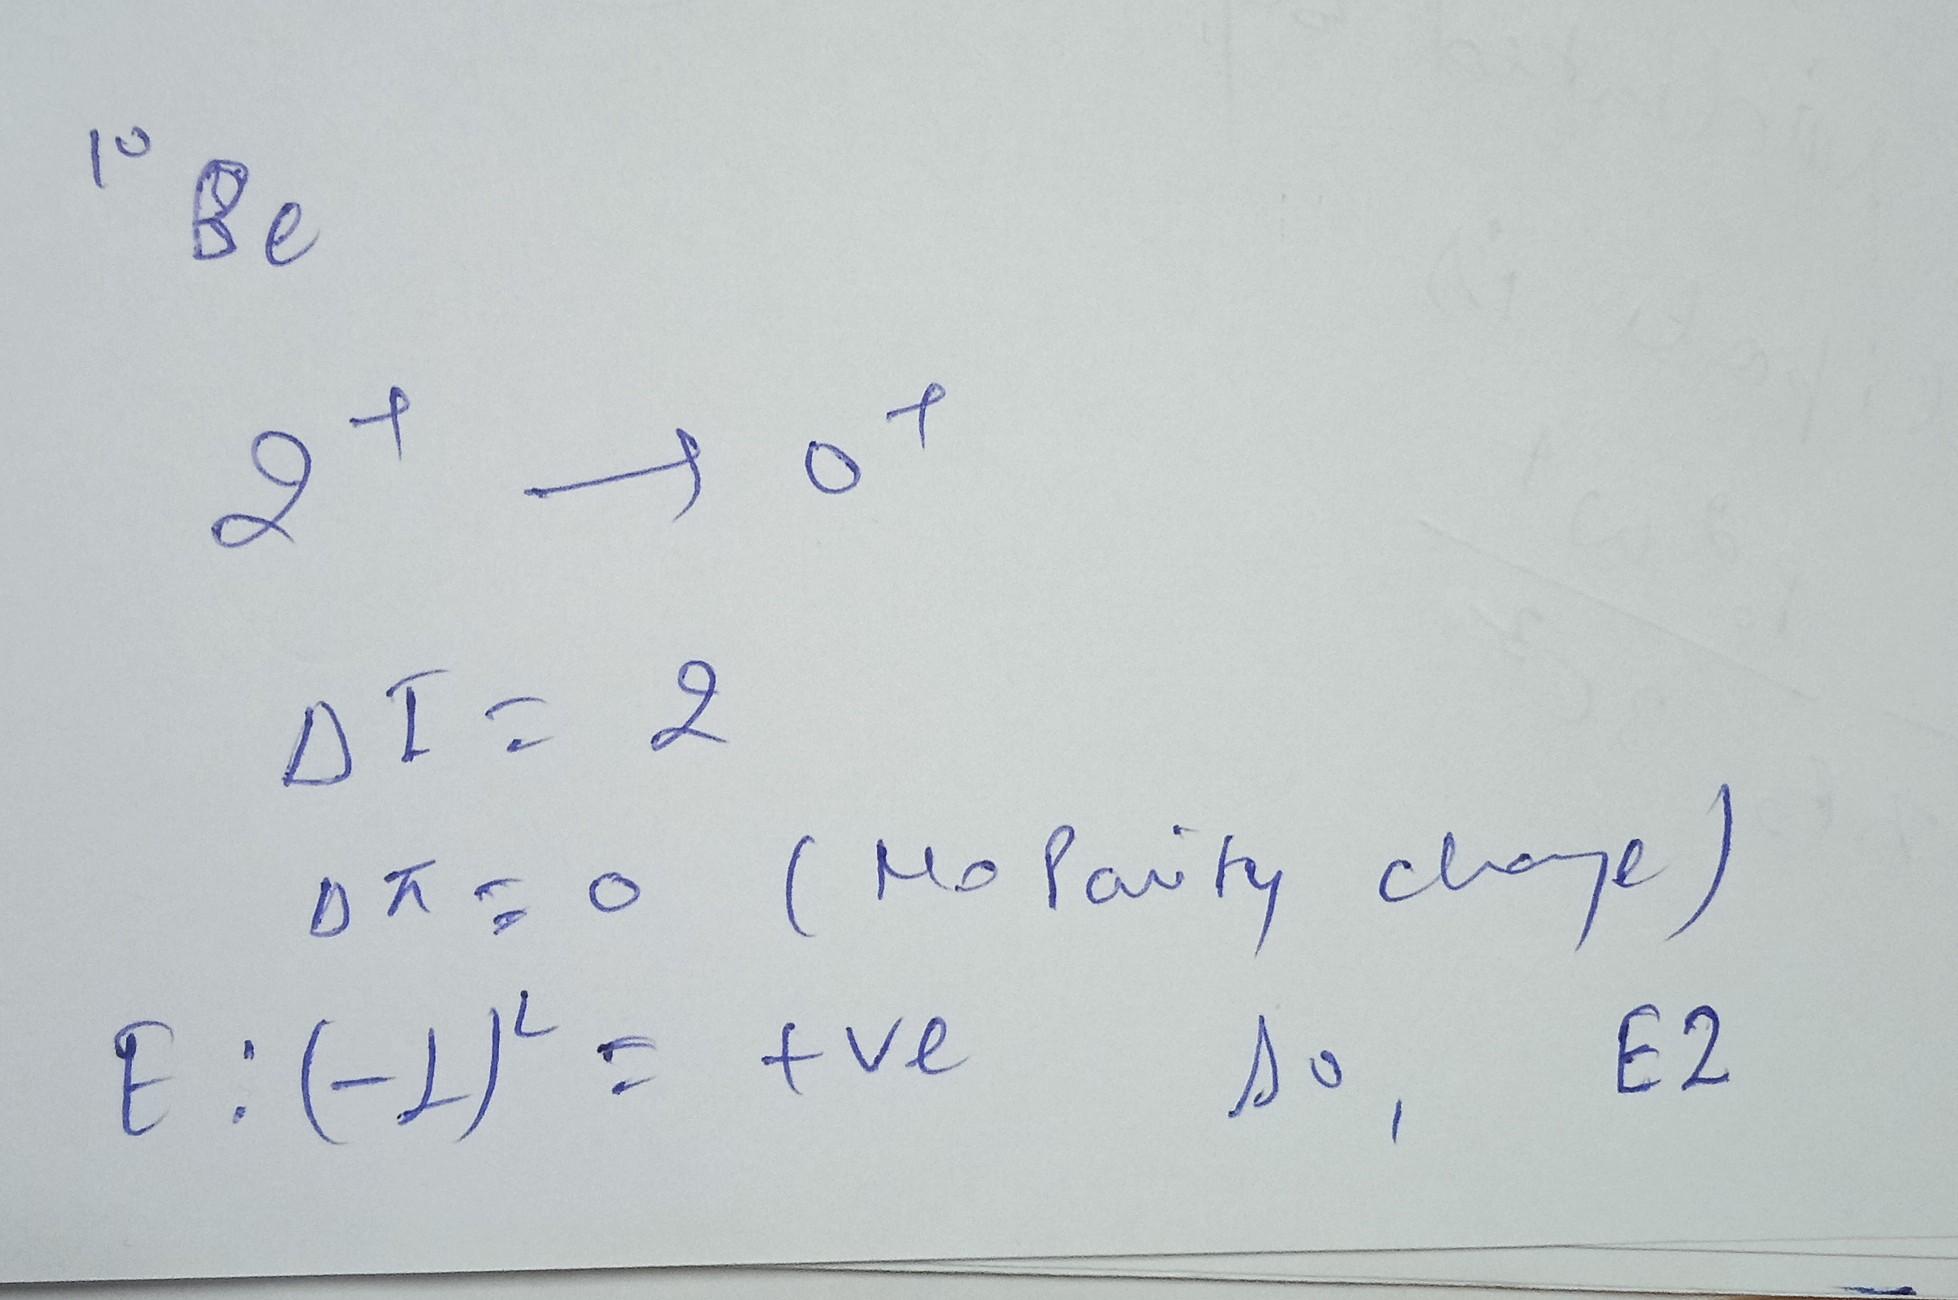 ¹⁰Be
2⁺ → 0⁺
ΔI = 2
Δπ = 0 (No Parity change)
E : (-1)ᴸ = +ve So, E2